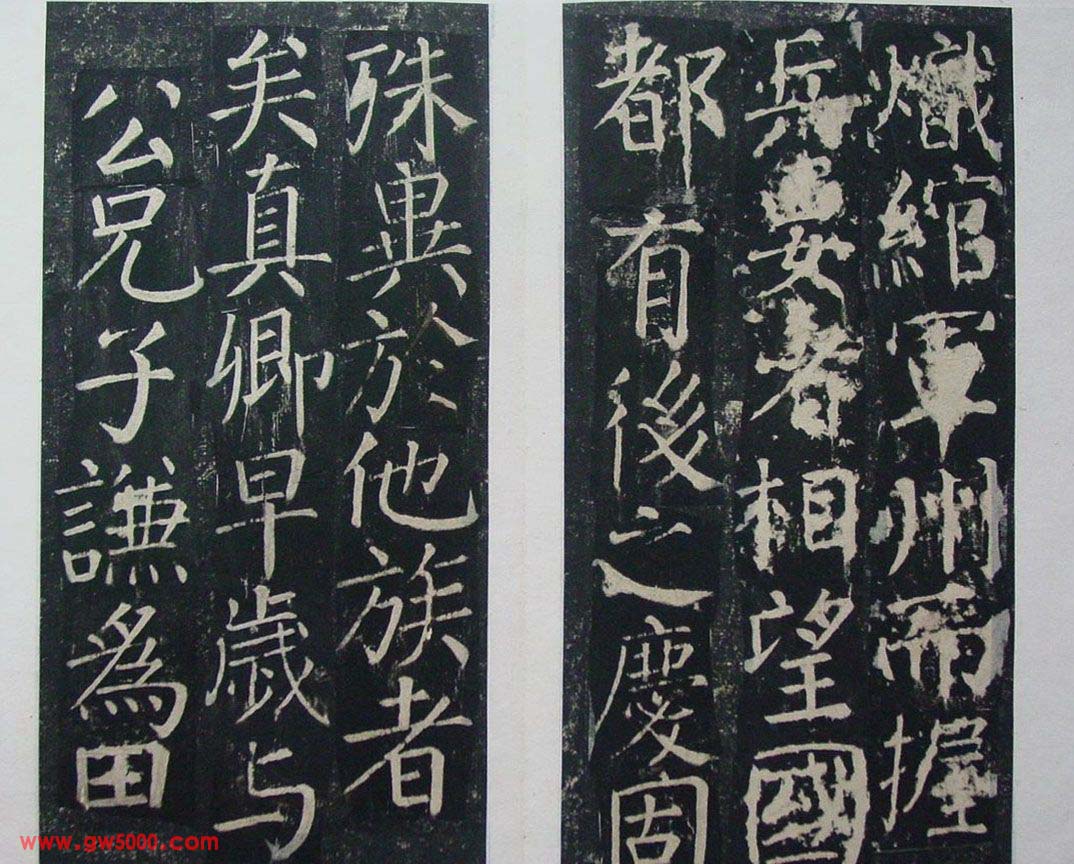 熾綰軍州而握
兵要者相望國
都有後之慶固
殊異於他族者
矣真卿早歲与
公兄子謙為田
www.gw5000.com